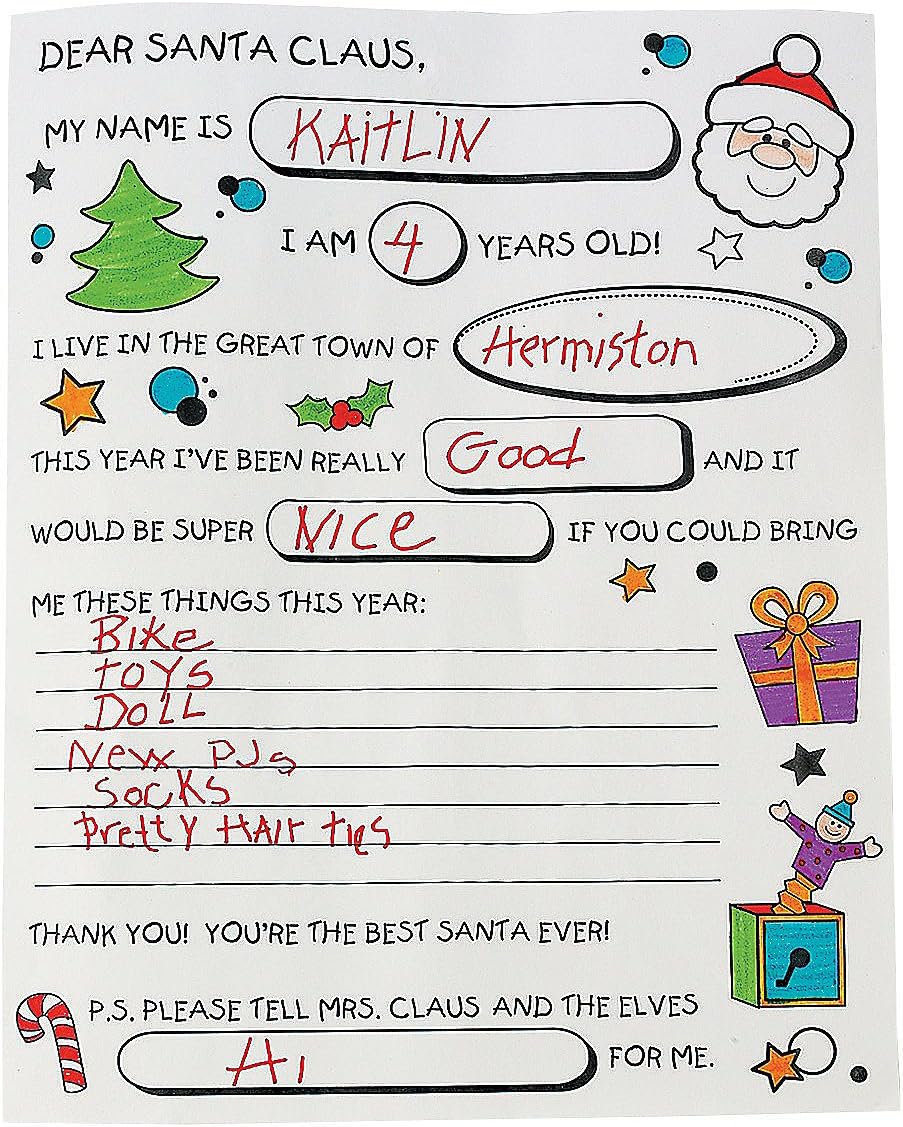 DEAR SANTA CLAUS,
MY NAME IS KAiTLiN
I AM 4 YEARS OLD!
I LIVE IN THE GREAT TOWN OF Hermiston
THIS YEAR I'VE BEEN REALLY Good AND IT
WOULD BE SUPER NICe IF YOU COULD BRING
ME THESE THINGS THIS YEAR:
BIKe
toYS
DoLL
New PJs
SocKS
Pretty HAIr ties
THANK YOU! YOU'RE THE BEST SANTA EVER!
P.S. PLEASE TELL MRS. CLAUS AND THE ELVES
HI FOR ME.